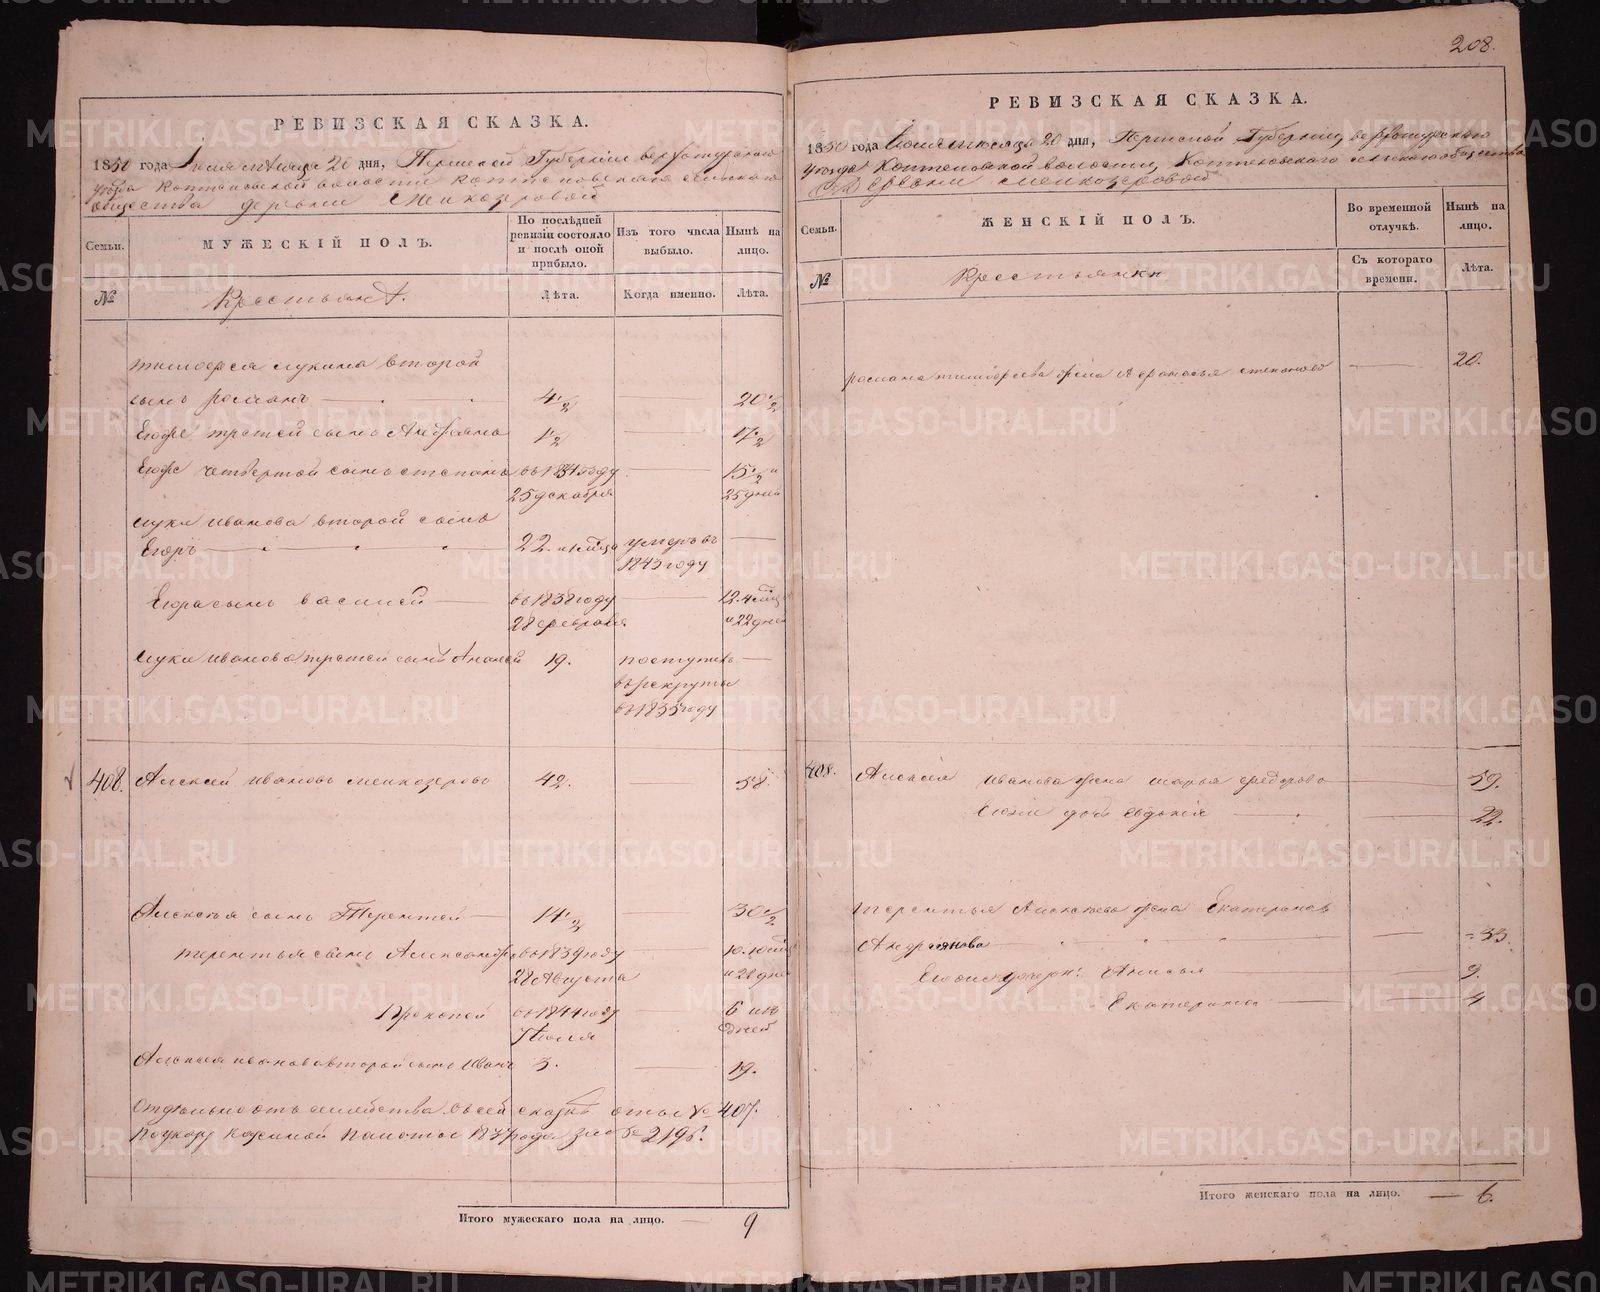 208.
РЕВИЗСКАЯ СКАЗКА.
1850 года Июня месяца 20 дня, Пермской Губернии Верхотурскаго
уезда Коптеловской волости Коптеловскаго сельскаго
общества деревни Мелкозеровой
Семьи.
МУЖЕСКІЙ ПОЛЪ.
По послѣдней ревизіи состояло и послѣ оной прибыло.
Изъ того числа выбыло.
Нынѣ на лицо.
№
Крестьянѣ.
Лѣта.
Когда именно.
Лѣта.
Тимофея Лукина второй
сынъ Романъ 4 1/2 20 1/2
Егоже третей сынъ Андреянъ 1 1/2 17 1/2
Егоже четвертой сынъ Степанъ въ 1834 году 15 1/2 и
25 декабря 25 дней
Луки Иванова второй сынъ
Егоръ 22. умеръ въ
1843 году
Егора сынъ Василей въ 1838 году 12. 4 мѣс
28 февраля и 22 дней
Луки Иванова третей сынъ Ананей 19. поступилъ
въ рекруты
въ 1835 году
408. Алексей Ивановъ Мелкозеровъ 42. 58
Алексея сынъ Терентей 14 1/2 30 1/2
Терентья сынъ Александръ въ 1839 году 10. 10 мѣс
28 Августа и 28 дней
Прокопей въ 1844 году 6
7 Июля дней
Алексея Иванова второй сынъ Иванъ 3. 19.
Отдельность семейства съ сей сказкѣ отъ № 407.
По указу Казенной Палаты за № 2196.
Итого мужескаго пола на лицо. 9
РЕВИЗСКАЯ СКАЗКА.
1850 года Июня месяца 20 дня, Пермской Губернии, Верхотурскаго
уезда Коптеловской волости, Коптеловскаго сельскаго общества
Деревни Мелкозеровой
Семьи.
ЖЕНСКІЙ ПОЛЪ.
Во временной отлучкѣ.
Нынѣ на лицо.
№
Крестьянки
Съ котораго времени.
Лѣта.
Романа Тимофеева жена Афанасья Степанова 20.
408. Алексея Иванова жена Марья Федорова 59.
Егоже дочь Евдокия 22.
Терентья Алексеева жена Екатерина
Андреянова 33.
Егоже дочери: Анисья 9.
Екатерина 4
Итого женскаго пола на лицо. 6.